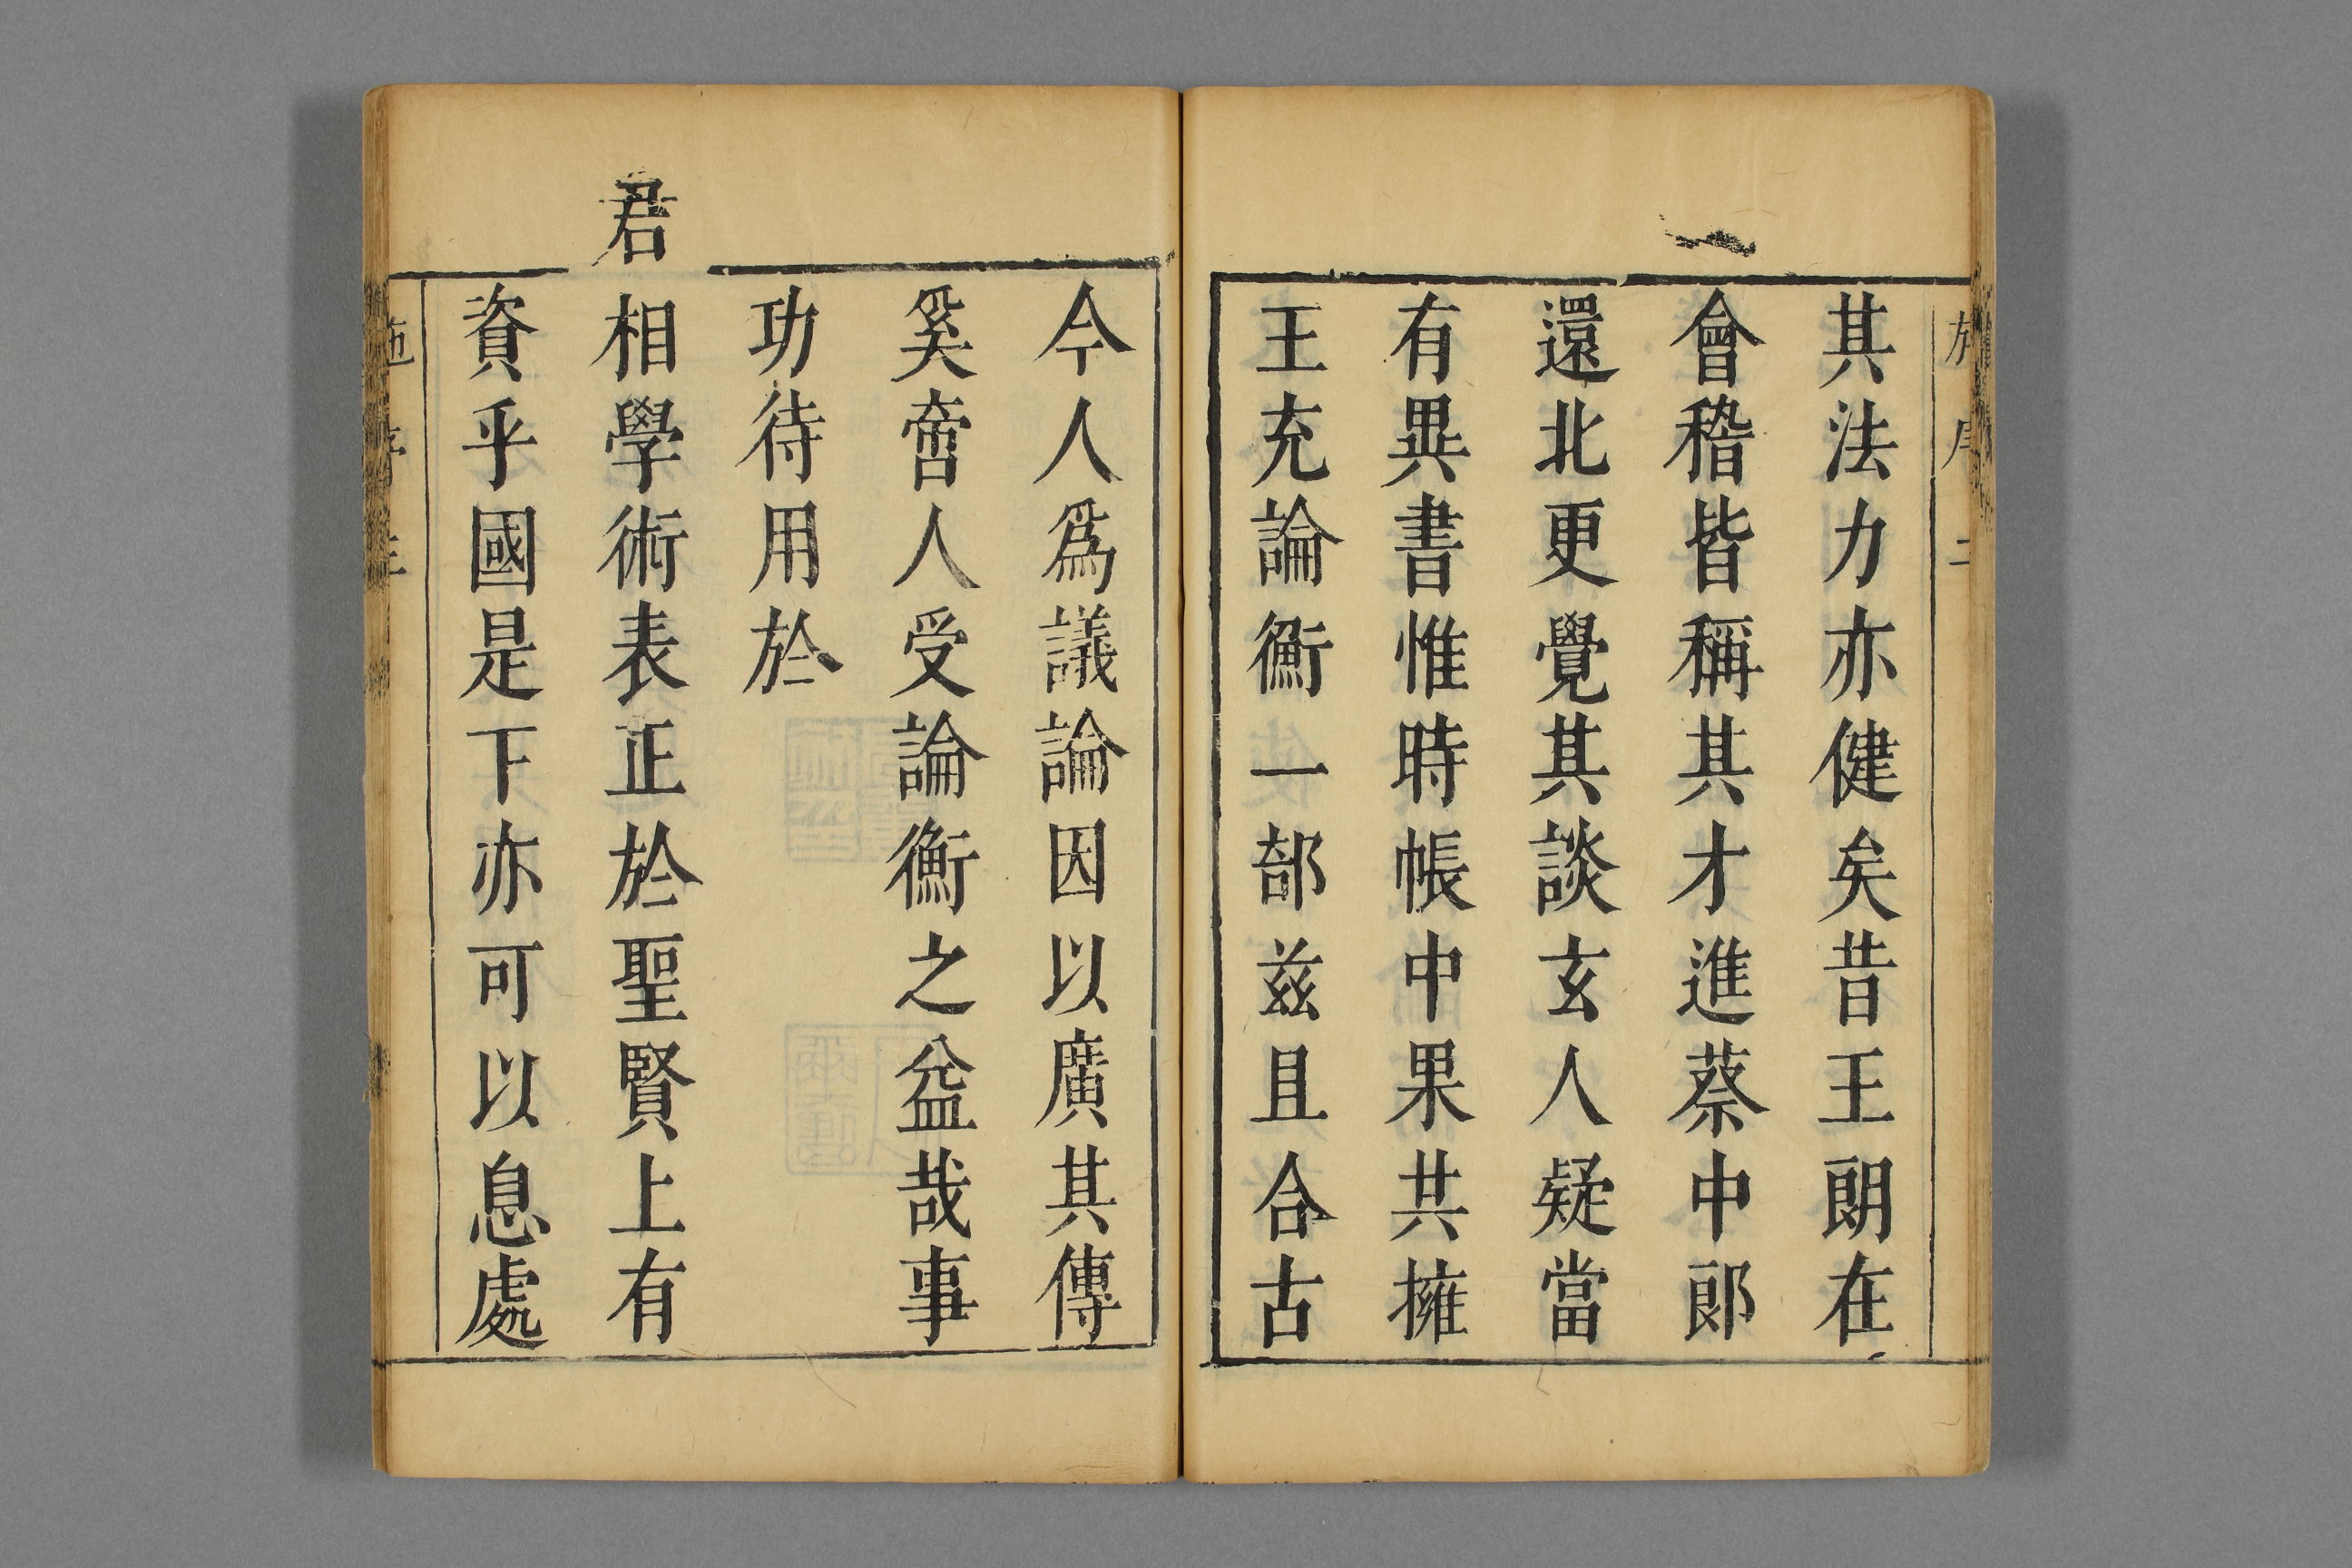 其法力亦健矣昔王朗在
會稽皆稱其才進蔡中郎
還北更覺其談玄人疑當
有異書惟時帳中果共擁
王充論衡一部茲且合古
今人爲議論因以廣其傳
奚啻人受論衡之益哉事
功待用於
君相學術表正於聖賢上有
資乎國是下亦可以息處